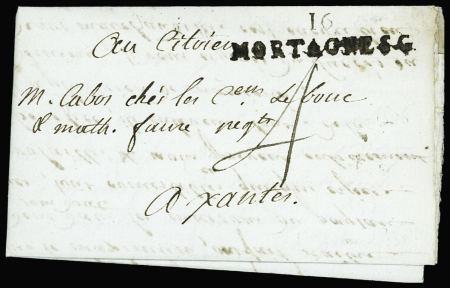 16
Au Citoien MORTAGNE S.G.
M. Cabos chés les C.ens Le bouc
& math. faure neg.ts
4
A xantes.